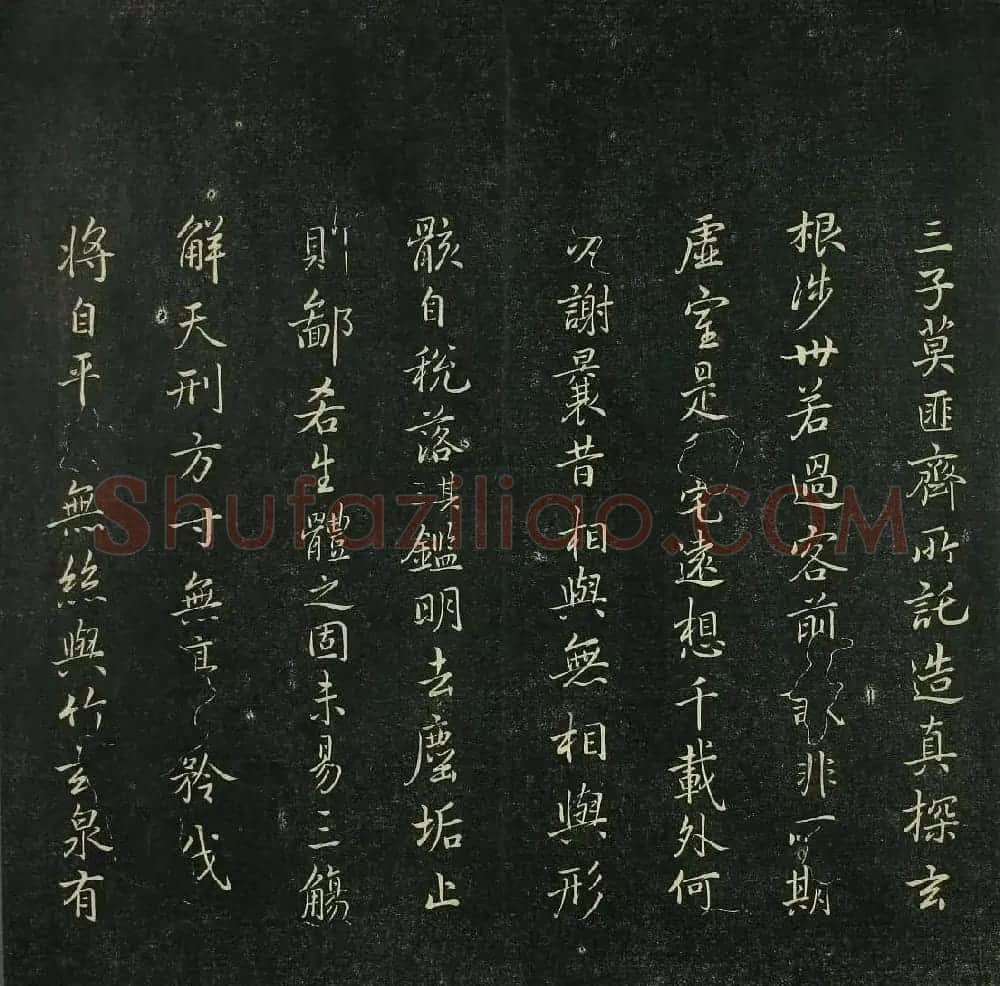 三子莫匪齊所託造真探玄
根涉世若過客前非期
虛室是宅遠想千載外何
必謝曩昔相與無相與形
骸自稅落其鑑明去塵垢止
則鄙吝生體之固未易三觴
解天刑方寸無矜伐
將自平無絲與竹玄泉有
Shufaziliao.COM